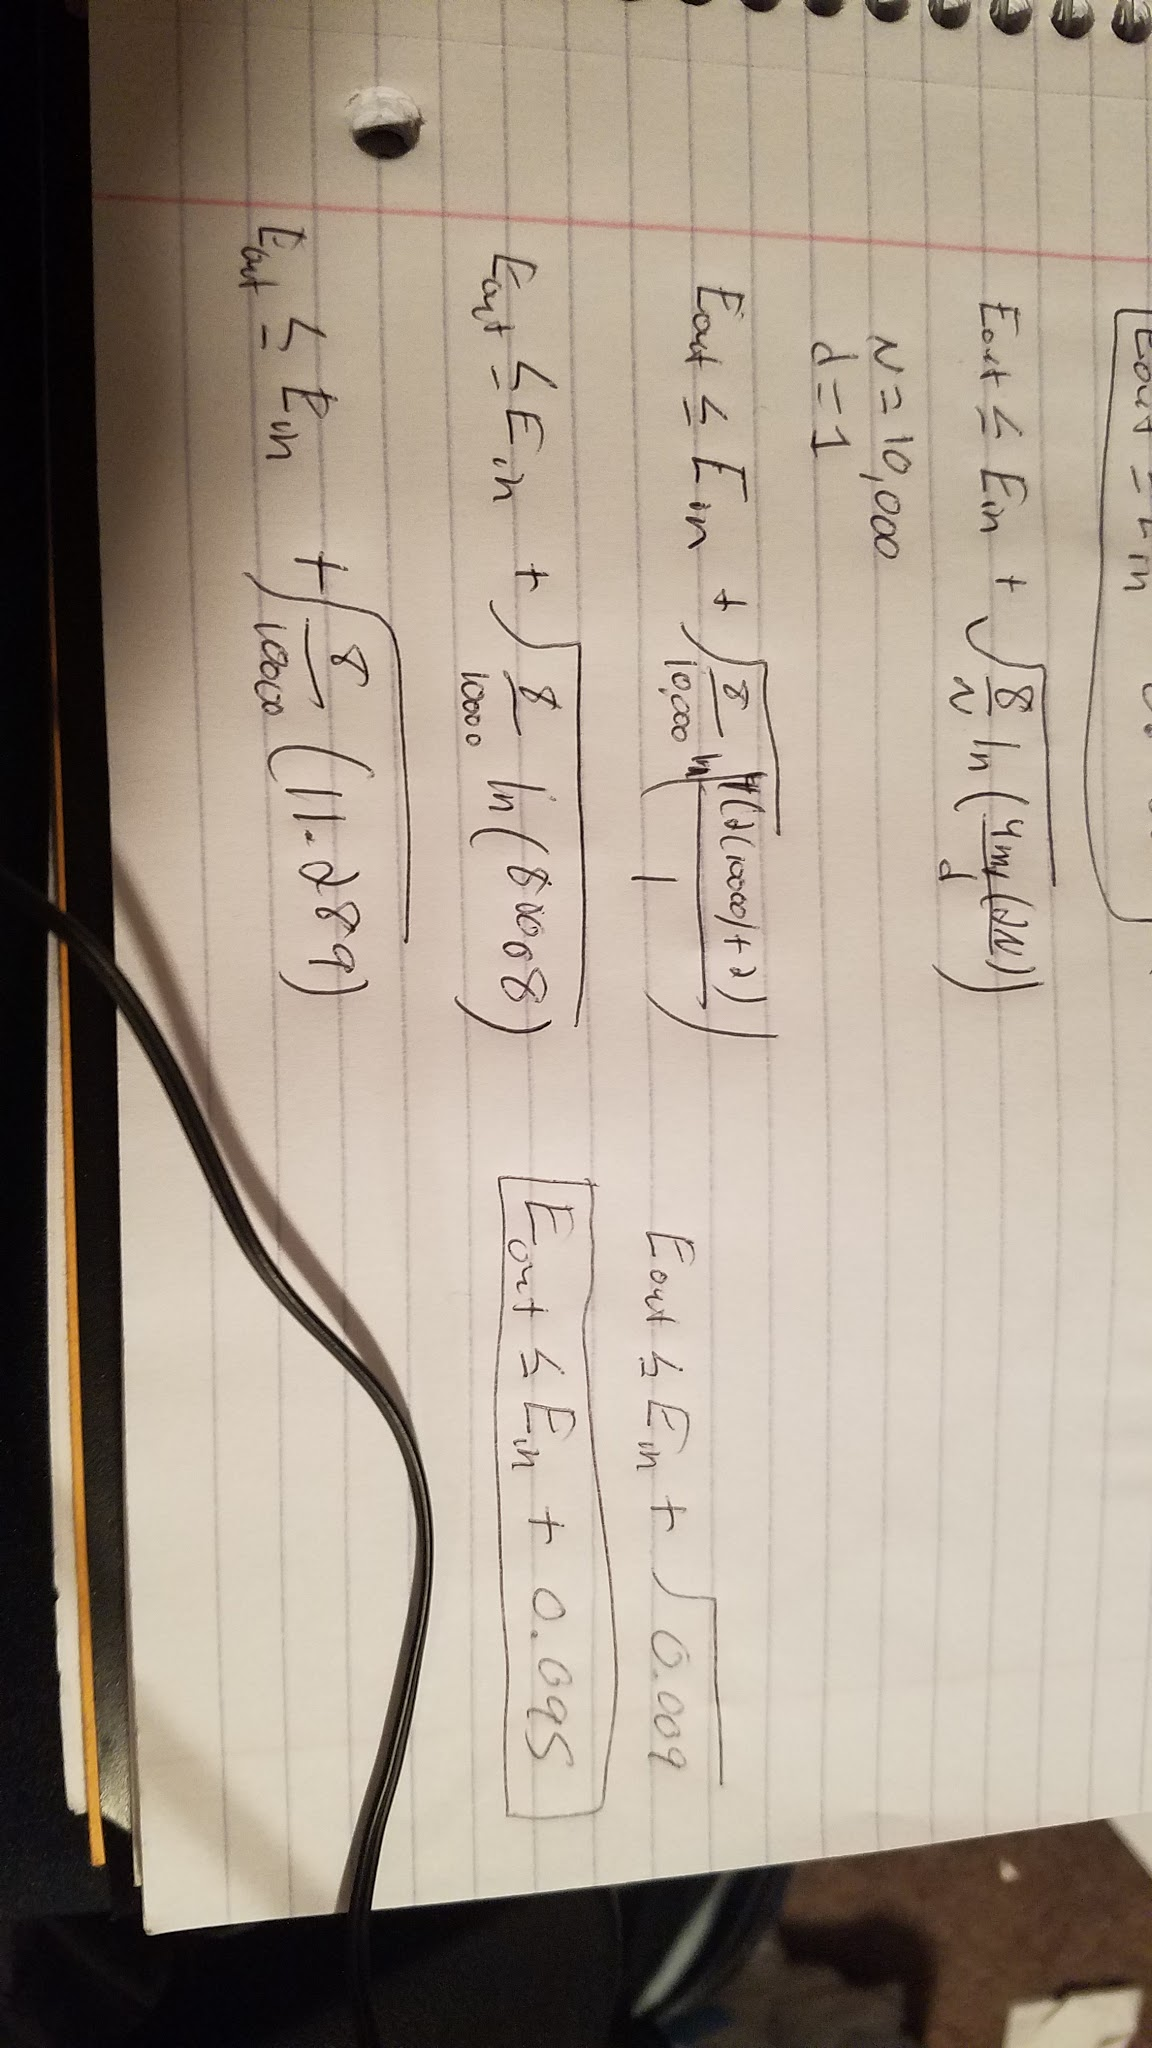 Eout ≤ Ein
Eout ≤ Ein + √(8/N ln(4mH(2N)/d))
N = 10,000
d = 1
Eout ≤ Ein + √(8/10,000 ln(4(2(10000)+2)/1))
Eout ≤ Ein + √(8/10000 ln(80008))
Eout ≤ Ein + √(8/10000 (11.289))
Eout ≤ Ein + √0.009
Eout ≤ Ein + 0.095